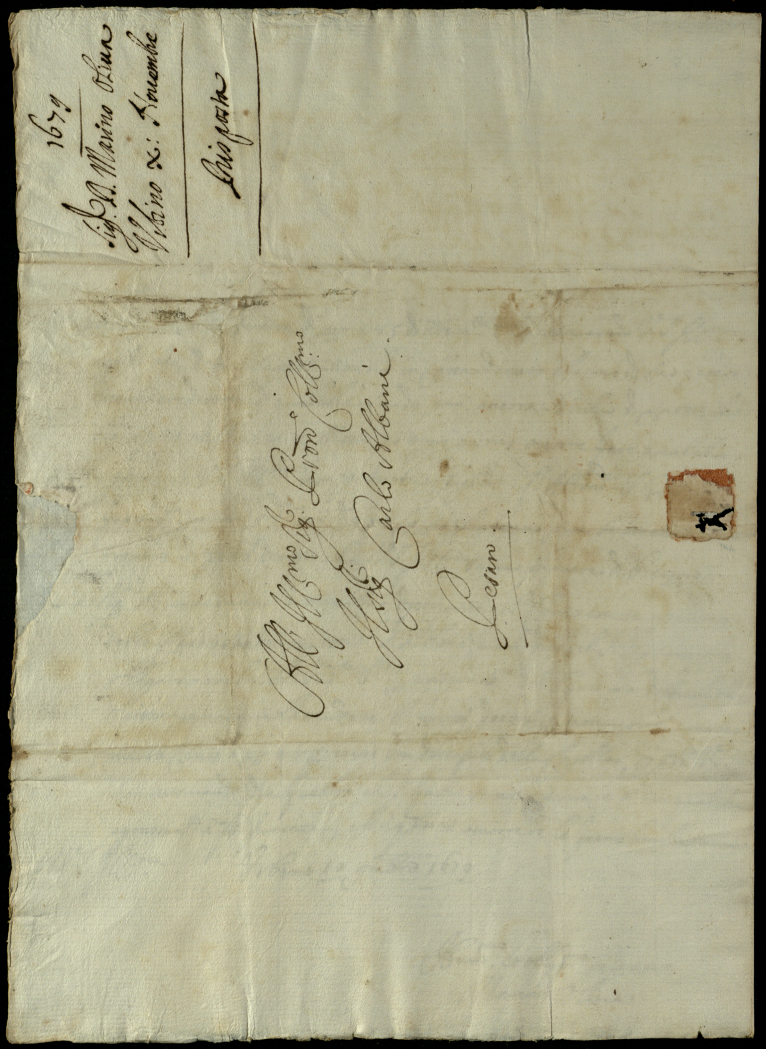 1679
Sig. D. Marino
Urbino x: Novembre
Risposta
All Ill:mo Sig:r Pron Coll:mo
Il Sig:r Carlo Albani.
Pesaro